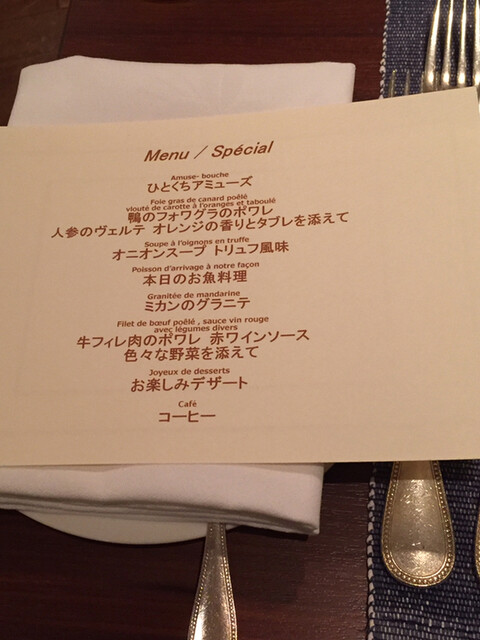 Menu / Spécial
Amuse- bouche
ひとくちアミューズ
Foie gras de canard poêlé
vlouté de carotte à l'oranges et taboulé
鴨のフォワグラのポワレ
人参のヴェルテ オレンジの香りとタブレを添えて
Soupe à l'oignons en truffe
オニオンスープ トリュフ風味
Poisson d'arrivage à notre façon
本日のお魚料理
Granitée de mandarine
ミカンのグラニテ
Filet de bœuf poêlé , sauce vin rouge
avec légumes divers
牛フィレ肉のポワレ 赤ワインソース
色々な野菜を添えて
Joyeux de desserts
お楽しみデザート
Café
コーヒー